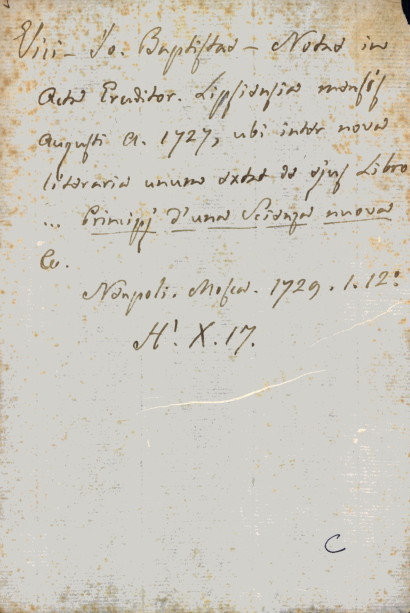 Vici - Jo. Baptistae - Notae in
Acta Eruditor. Lipsiensia mensis
Augusti A. 1727, ubi inter nova
literaria unum extat de ejus Libro
... Principj d'una Scienza nuova
&c.
Neapoli. Mosca. 1729. 1. 12°
H¹. X. 17.
C